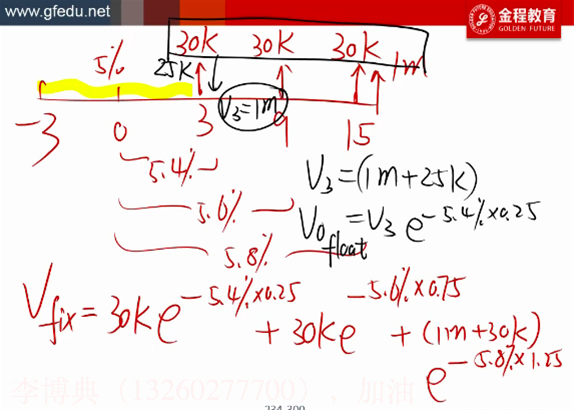 www.gfedu.net
金程教育
GOLDEN FUTURE
30K 30K 30K 1m
5% 25K
V₃=1m
-3 0 3 9 15
5.4%
5.6%
5.8%
V₃=(1m+25K)
V₀ float=V₃ e^-5.4%×0.25
V fix=30K e^-5.4%×0.25 + 30K e^-5.6%×0.75 + (1m+30K) e^-5.8%×1.25
李博典（13260277700）、加油
234-300